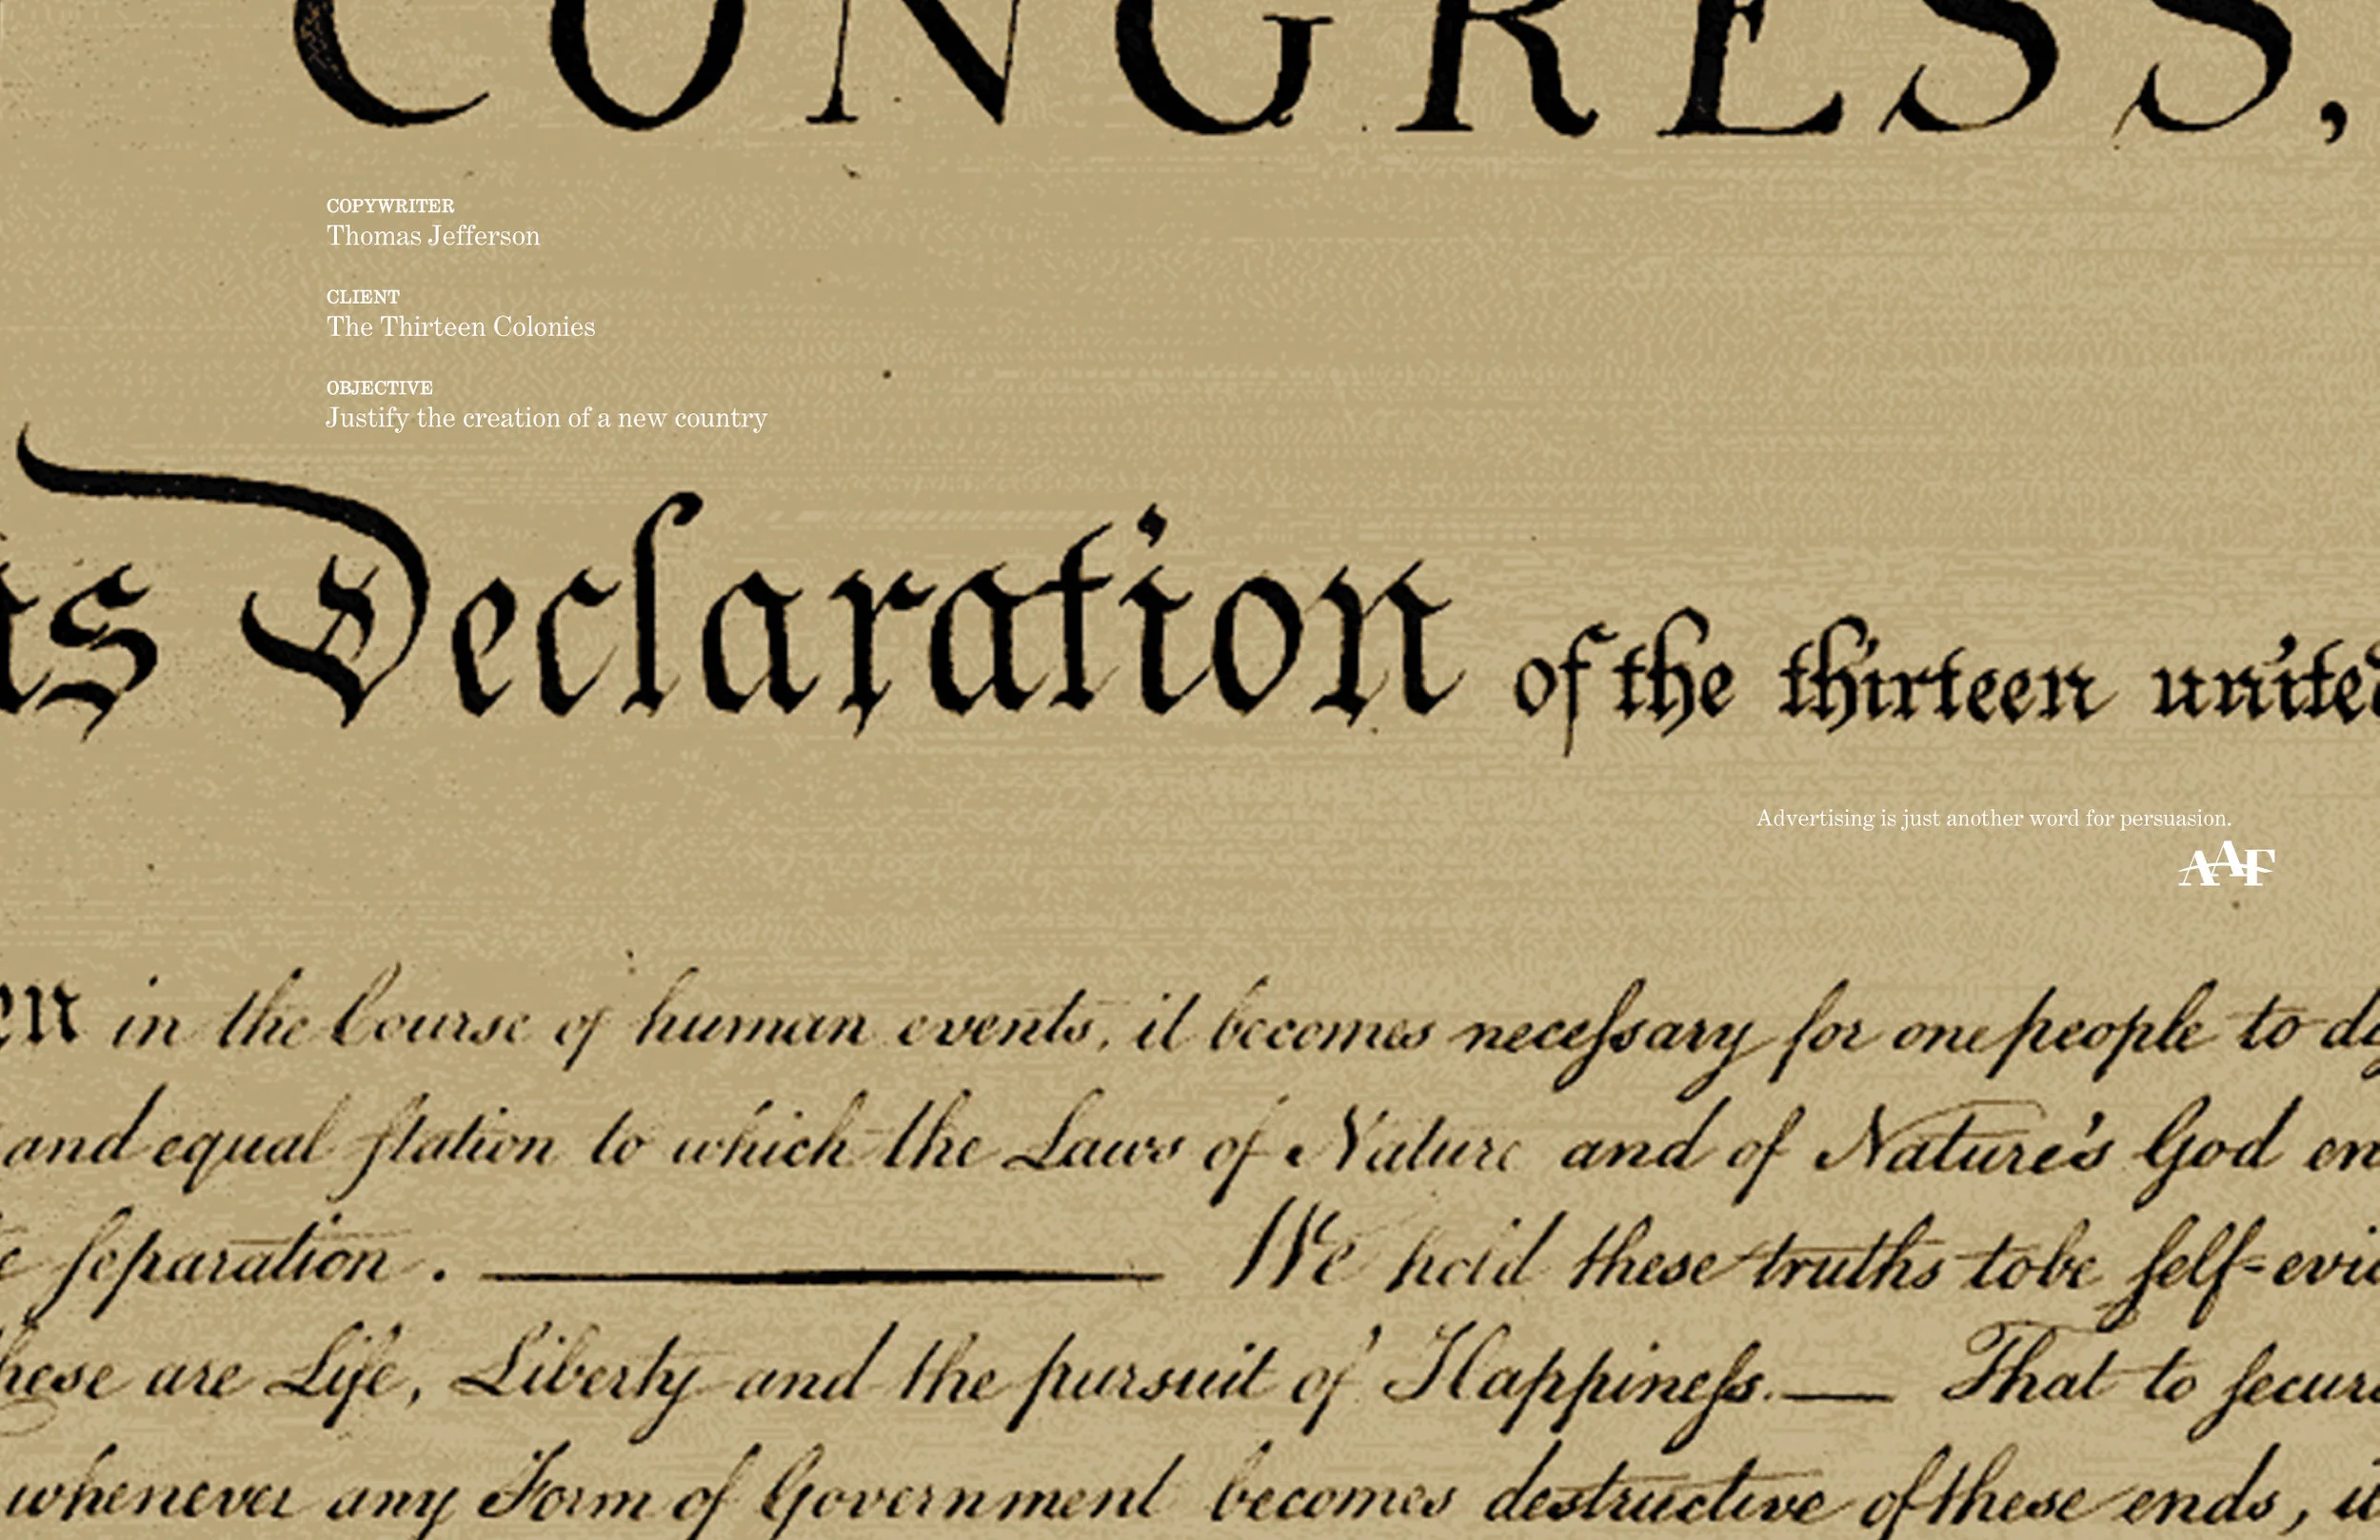 CONGRESS,
COPYWRITER
Thomas Jefferson
CLIENT
The Thirteen Colonies
OBJECTIVE
Justify the creation of a new country
Declaration of the thirteen united
Advertising is just another word for persuasion.
AAF
in the Course of human events, it becomes neceſsary for one people to
and equal ſtation to which the Laws of Nature and of Nature's God
ſeparation. — We hold these truths to be ſelf-
are Life, Liberty and the pursuit of Happineſs. — That to
whenever any Form of Government becomes destructive of these ends,